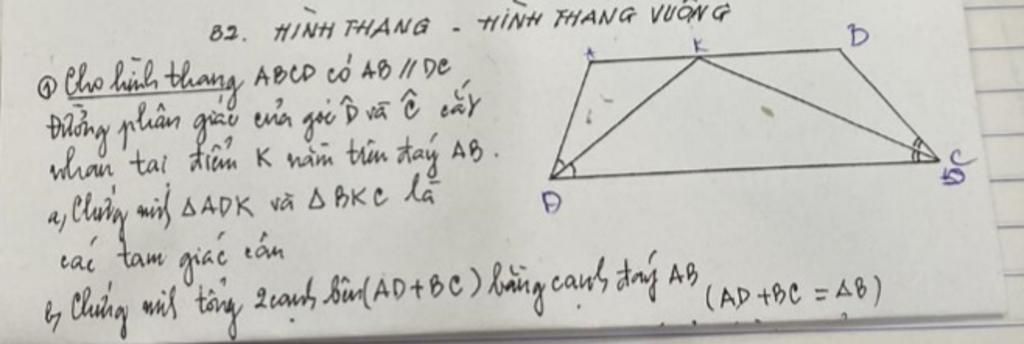 B2. HÌNH THANG - HÌNH THANG VUÔNG
① Cho hình thang ABCD có AB // DC
Đường phân giác của góc D̂ và Ĉ cắt
nhau tại điểm K nằm trên đáy AB.
a, Chứng minh ΔADK và ΔBKC là
các tam giác cân
b, Chứng minh tổng 2 cạnh bên (AD+BC) bằng cạnh đáy AB (AD + BC = AB)
A K B
D C